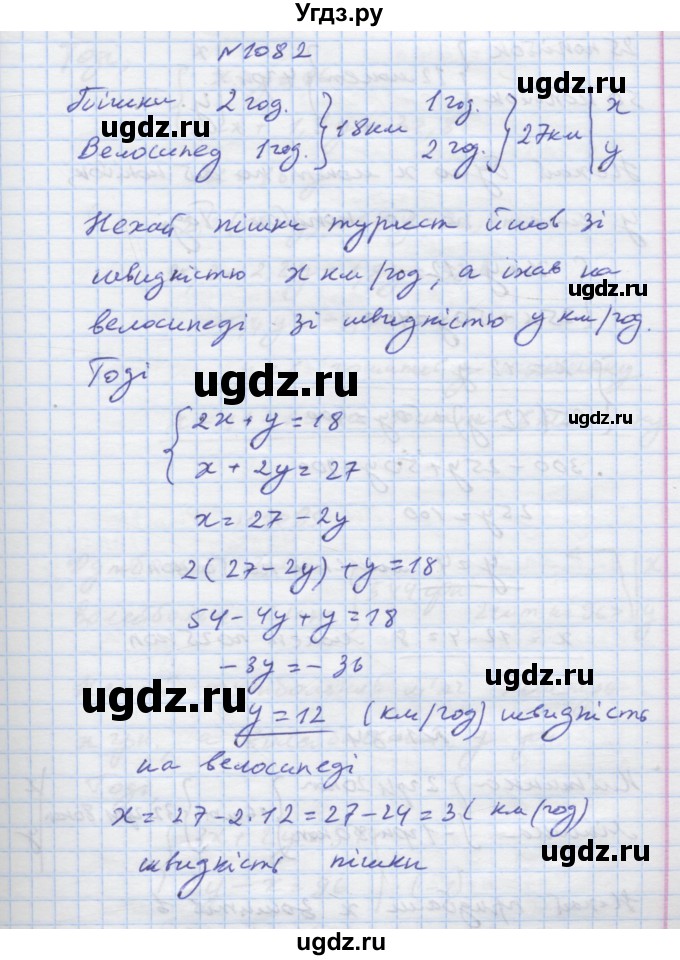 Угдз.ру
№1082
Пішки 2 год. } 18км 1 год. } 27км | x
Велосипед 1год. 2 год. y
Нехай пішки турист йшов зі
швидкістю x км/год, а їхав на
велосипеді зі швидкістю y км/год.
Тоді
{ 2x + y = 18
x + 2y = 27
x = 27 - 2y
2(27 - 2y) + y = 18
54 - 4y + y = 18
- 3y = - 36
y = 12 (км/год) швидкість
на велосипеді
x = 27 - 2·12 = 27 - 24 = 3( км/год)
швидкість пішки
ugdz.ru
ugdz.ru
ugdz.ru
ugdz.ru
ugdz.ru
ugdz.ru
ugdz.ru
ugdz.ru
ugdz.ru
ugdz.ru